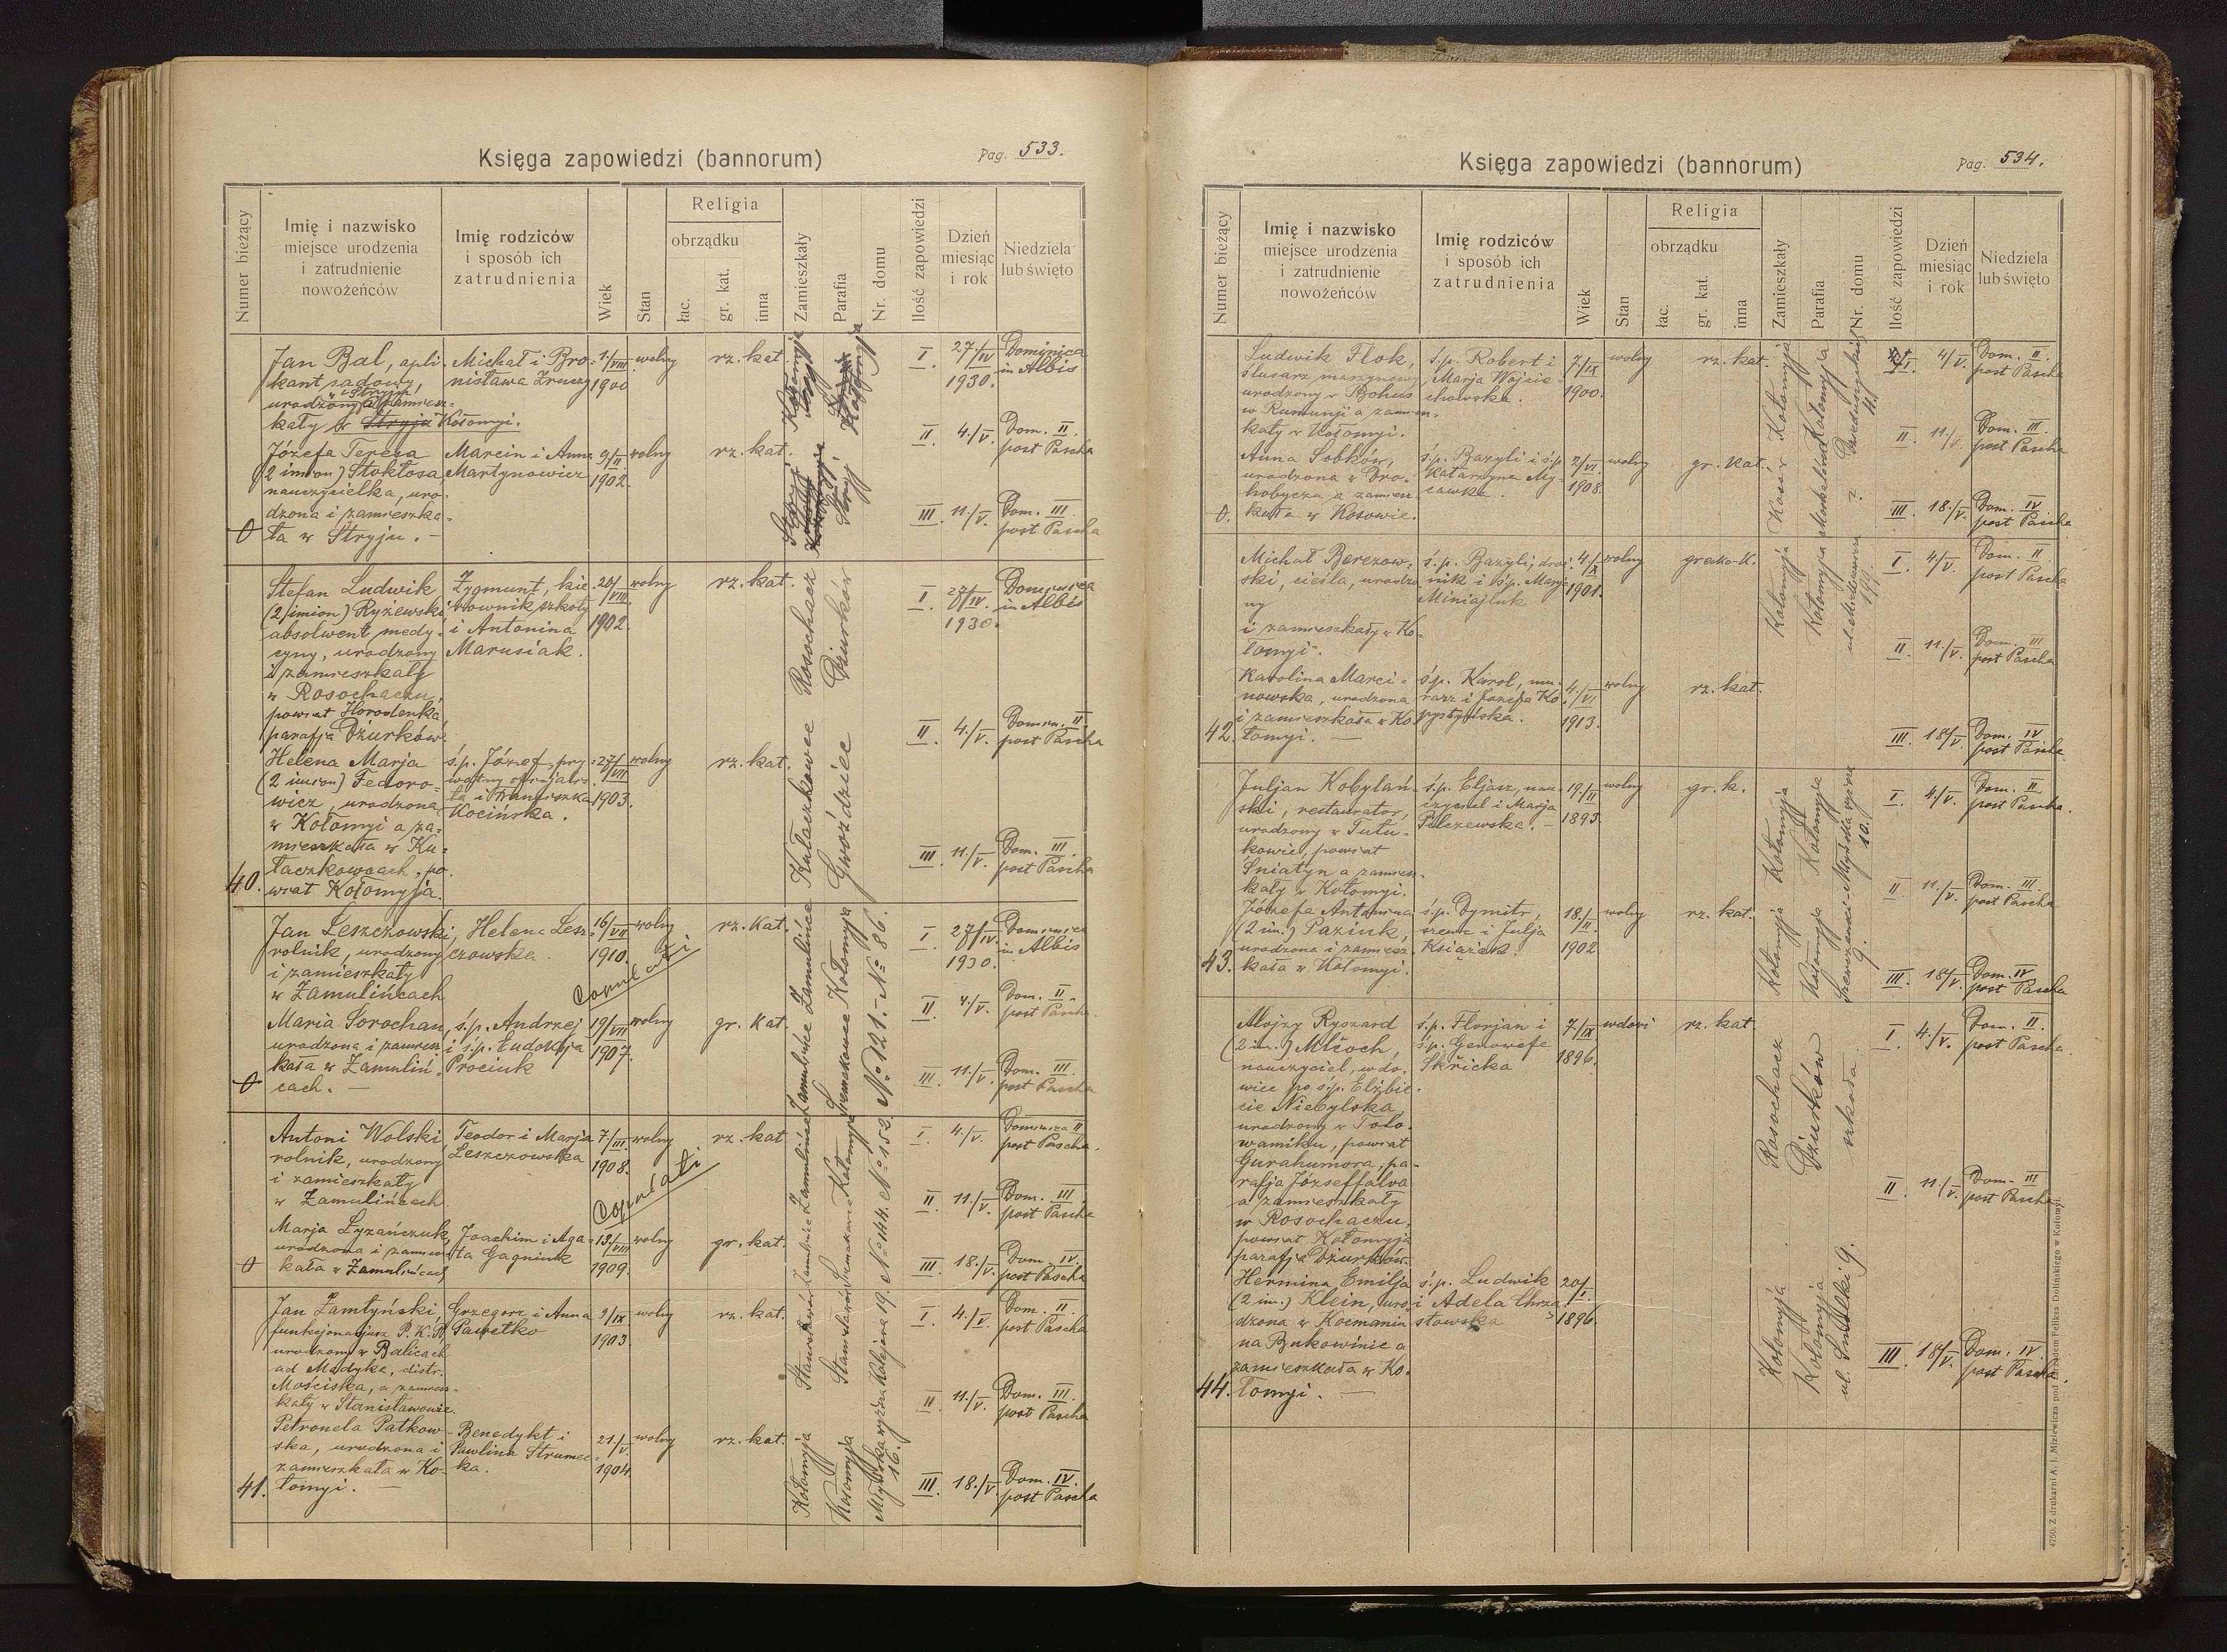 Księga zapowiedzi (bannorum)
Pag. 533.
Numer bieżący
Imię i nazwisko
miejsce urodzenia
i zatrudnienie
nowożeńców
Imię rodziców
i sposób ich
zatrudnienia
Wiek
Stan
Religia
obrządku
łac.
gr. kat.
inna
Zamieszkały
Parafia
Nr. domu
Ilość zapowiedzi
Dzień
miesiąc
i rok
Niedziela
lub święto
Jan Bal, apli-
kant sądowy,
w Stryju
urodzony a zamiesz-
kały w Stryju Kołomyi.
Michał i Bro-
nisława
1/VIII
1900
wolny
rz. kat.
Kołomyja
Kołomyja
I. 27/IV 1930. Dominica in Albis
II. 4./V. Dom. II. post Pascha
III. 11./V. Dom. III. post Pascha
0
Józefa Teresa
(2 imion) Stokłosa,
nauczycielka, uro-
dzona i zamieszka-
ła w Stryju. -
Marcin i Anna
Martynowicz
9/II
1902.
wolny
rz. kat.
Stryj
Stryj
40.
Stefan Ludwik
(2 imion) Ryżewski
absolwent medy-
cyny, urodzony
i zamieszkały
w Rosochaczu,
powiat Horodenka,
parafja Dżurków.
Zygmunt, kie-
rownik szkoły
i Antonina
Marusiak.
20/VIII.
1902.
wolny
rz. kat.
Rosochacz
Dżurków
I. 27/IV. 1930. Dominica in Albis
II. 4./V. Domin. II. post Pascha
III. 11./V. Dom. III. post Pascha
Helena Marja
(2 imion) Fedoro-
wicz, urodzona
w Kołomyi a za-
mieszkała w Ku-
łaczkowcach, po-
wiat Kołomyja.
ś.p. Józef, pry-
watny oficjalis-
ta i Franciszka
Kocińska.
27/VII
1903.
wolny
rz. kat.
Kułaczkowce
Gwoździec
0
Jan Leszczowski,
rolnik, urodzony
i zamieszkały
w Zamulińcach
Helena Lesz-
czowska.
16/VII
1910.
wolny
rz. kat.
copulati
Zamulińce
Kołomyja
No 86.
I. 27/IV. 1930. Dominica in Albis
II. 4./V. Dom. II. post Pascha.
III. 11./V. Dom. III. post Pascha
Maria Sorochan,
urodzona i zamiesz-
kała w Zamuliń-
cach. -
ś.p. Andrzej
i ś.p. Eudokja
Prociuk
19/VIII
1907.
wolny
gr. kat.
Zamulińce
No 121.
0
Antoni Wolski,
rolnik, urodzony
i zamieszkały
w Zamulińcach
Teodor i Marja
Leszczowska
7/III.
1908.
wolny
rz. kat.
Copulati
Zamulińce
Kołomyja
No 152.
I. 4/V. Dominica II post Pascha.
II. 11./V. Dom. III. post Pascha
III. 18./V. Dom. IV. post Pascha
Marja Łyzańczuk,
urodzona i zamiesz-
kała w Zamulińcach
Joachim i Aga-
ta Gagniuk
13/VIII
1909.
wolny
gr. kat.
Zamulińce
No 144.
41.
Jan Zamłyński
funkcjonarjusz P. K. P.
urodzony w Balicach
ad Medyka, distr.
Mościska, a zamiesz-
kały w Stanisławowie.
Grzegorz i Anna
Pawełko
9/IX
1903.
wolny
rz. kat.
Stanisławów
Stanisławów
Kolejowa 19.
I. 4./V. Dom. II. post Pascha
II. 11./V. Dom. III. post Pascha
III. 18./V. Dom. IV. post Pascha
Petronela Patkow-
ska, urodzona i
zamieszkała w Ko-
łomyi. -
Benedykt i
Pawlina Strumec-
ka.
21./V.
1904.
wolny
rz. kat.
Kołomyja
Kołomyja
Młyńska wyżna 16.
Księga zapowiedzi (bannorum)
Pag. 534.
Numer bieżący
Imię i nazwisko
miejsce urodzenia
i zatrudnienie
nowożeńców
Imię rodziców
i sposób ich
zatrudnienia
Wiek
Stan
Religia
obrządku
łac.
gr. kat.
inna
Zamieszkały
Parafia
Nr. domu
Ilość zapowiedzi
Dzień
miesiąc
i rok
Niedziela
lub święto
0.
Ludwik Flok,
ślusarz maszynowy
urodzony w Bohus
w Rumunji a zamiesz-
kały w Kołomyi.
ś.p. Robert i
Marja Wojcie-
chowska.
7./IX
1900.
wolny
rz. kat.
Kołomyja
Kołomyja
I. 4/V. Dom. II. post Pascha
II. 11/V. Dom. III. post Pascha
III. 18./V. Dom. IV post Pascha
Anna Sobków,
urodzona w Dro-
hobyczu a zamiesz-
kała w Kosowie.
ś.p. Bazyli i ś.p.
Katarzyna
2/VI.
1908.
wolny
gr. kat.
42.
Michał Berezow-
ski, cieśla, urodzo-
ny
i zamieszkały w Ko-
łomyi.
ś.p. Bazyli,
i ś.p. Marja
Miniajluk
4./IX
1901.
wolny
greko-k.
Kołomyja
Kołomyja
I. 4/V. Dom. II post Pascha
II. 11./V. Dom. III post Pascha
III. 18/V. Dom. IV post Pascha
Karolina Marci-
nowska, urodzona
i zamieszkała w Ko-
łomyi. -
ś.p. Karol, mu-
rarz i Józefa Ko-
pystyńska.
4./VI
1913.
wolny
rz. kat.
43.
Juljan Kobylań-
ski, restaurator,
urodzony w Tułu-
kowie, powiat
Śniatyn a zamiesz-
kały w Kołomyi.
ś.p. Eljasz, nau-
czyciel i Marja
Pilczewska. -
19./II
1893.
wolny
gr. k.
Kołomyja
Kołomyja
Młyńska wyżna 10.
I. 4/V. Dom. II post Pascha.
II 11./V. Dom. III. post Pascha
III. 18/V. Dom. IV post Pascha
Józefa Antonina
(2 im.) Paziuk,
urodzona i zamiesz-
kała w Kołomyi.
ś.p. Dymitr,
szewc i Julja
Książek.
18./II.
1902
wolny
rz. kat.
Kołomyja
Kołomyja
44.
Alojzy Ryszard
(2 im.) Młčoch,
nauczyciel, wdo-
wiec po ś.p. Elżbie-
cie Niebylska,
urodzony w
powiat
Gurahumora, pa-
rafja Józseffalva
a zamieszkały
w Rosochaczu,
powiat Kołomyja
parafja Dżurków.
ś.p. Florjan i
ś.p. Genowefa
Skřička
7./IX
1896.
wdowi
rz. kat
Rosochacz
Dżurków
szkoła
I. 4./V. Dom. II. post Pascha.
II. 11./V. Dom. III post Pascha
III. 18/V. Dom. IV. post Pascha.
Hermina Emilja
(2 im.) Klein, uro-
dzona w Kocmaniu
na Bukowinie a
zamieszkała w Ko-
łomyi. -
ś.p. Ludwik
i Adela Chrza-
stowska
20/I.
1896.
Kołomyja
Kołomyja
4750. Z drukarni A. J. Miziewicza pod zarządem Feliksa Dolińskiego w Kołomyi.